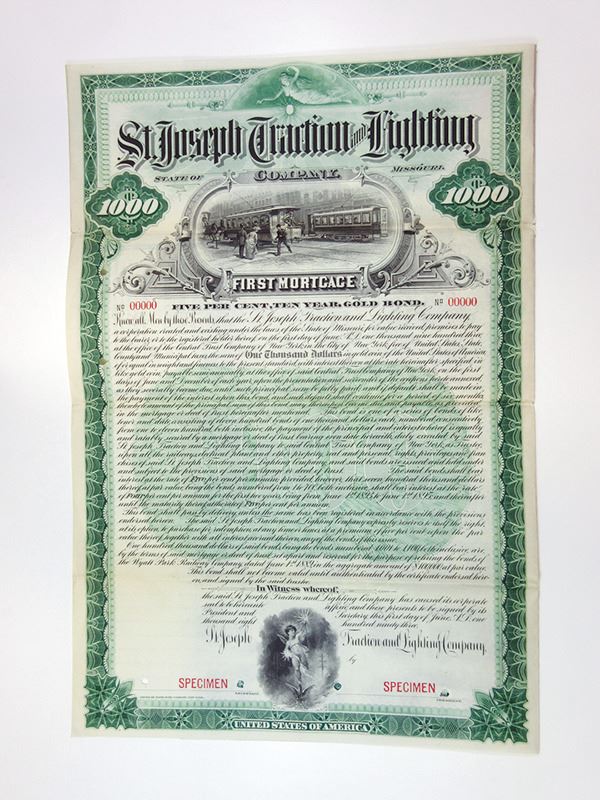 St. Joseph Traction and Lighting
STATE OF COMPANY. MISSOURI.
1000 1000
FIRST MORTGAGE
No 00000 FIVE PER CENT, TEN YEAR, GOLD BOND. No 00000
Know all Men by these Presents, that the St. Joseph Traction and Lighting Company,
a corporation created and existing under the laws of the State of Missouri for value received promises to pay
to the bearer, or to the registered holder hereof, on the first day of June, A.D. one thousand nine hundred three
at the office of the Central Trust Company of New York, in the City of New York, free of United States, State,
County and Municipal taxes, the sum of One Thousand Dollars in gold coin of the United States of America,
of equal in weight and fineness to the present standard, with interest thereon at the rate hereinafter specified in
like gold coin, payable semi-annually at the office of said Central Trust Company of New York, on the first
days of June and December of each year, upon the presentation and surrender of the coupons hereto annexed
as they severally become due, until such principal sum is fully paid, and if default shall be made in
the payment of the interest upon this bond, and such default shall continue for a period of six months,
in the mortgage or deed of trust hereinafter mentioned. This bond is one of a series of bonds of like
tenor and date, consisting of eleven hundred bonds of one thousand dollars each, numbered consecutively
from one to eleven hundred both inclusive, the payment of the principal and interest whereof is equally
and ratably secured by a mortgage or deed of trust bearing even date herewith, duly executed by said
St. Joseph Traction and Lighting Company to said Central Trust Company of New York, as Trustee,
upon all the railways, electrical plant and other property, real and personal, rights, privileges and fran
chises of said St. Joseph Traction and Lighting Company
and subject to the provisions of said mortgage or deed of trust.
of Four per cent per annum for the first two years, being from June 1st 1893 to June 1st 1895, and thereafter
until the maturity thereof at the rate of Five per cent per annum.
This bond shall pass by delivery unless the same has been registered in accordance with the provisions
endorsed hereon. The said St. Joseph Traction and Lighting Company expressly reserves to itself the right,
at its option, to purchase for redemption at any time at a premium of five per cent upon the par
value thereof, together with all interest accrued thereon, any of the bonds of this issue.
One hundred thousand dollars of said bonds, being the bonds numbered 1,001 to 1,100 both inclusive, are
by the terms of said mortgage or deed of trust, set apart and reserved for the purpose of retiring the bonds of
the Wyatt Park Railway Company dated June 1st 1889
This bond shall not become valid until authenticated by the certificate endorsed here
on, and signed by the said trustee.
In Witness whereof,
the said St. Joseph Traction and Lighting Company has caused its corporate
seal to be hereunto affixed, and these presents to be signed by its
President and Secretary this first day of June, A.D. one
thousand eight hundred ninety three.
St. Joseph Traction and Lighting Company,
by
SPECIMEN SPECIMEN
UNITED STATES OF AMERICA